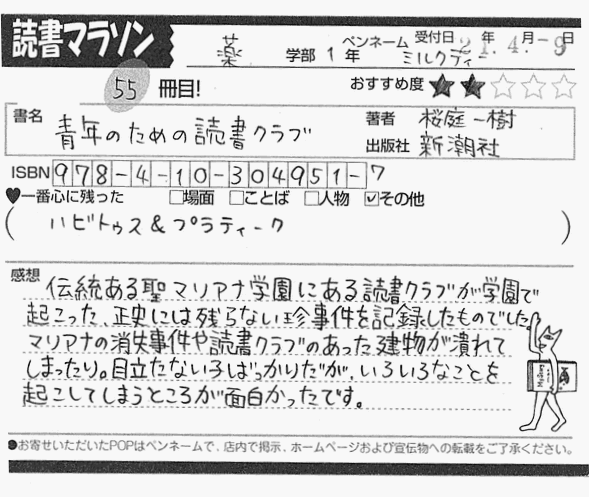 読書マラソン
薬 学部 1 年 ペンネーム ミルクティー 受付日 21年 4月 -9日
55 冊目! おすすめ度 ★★☆☆☆
書名 青年のための読書クラブ
著者 桜庭一樹
出版社 新潮社
ISBN 978-4-10-304951-7
♥一番心に残った □場面 □ことば □人物 ☑その他
( ハビトゥス&プラティーク )
感想
伝統ある聖マリアナ学園にある読書クラブが学園で
起こった、正史には残らない珍事件を記録したものでした。
マリアナの消失事件や読書クラブのあった建物が潰れて
しまったり。目立たないろばっかりだが、いろいろなことを
起こしてしまうところが面白かったです。
●お寄せいただいたPOPはペンネームで、店内で掲示、ホームページおよび宣伝物への転載をご了承ください。